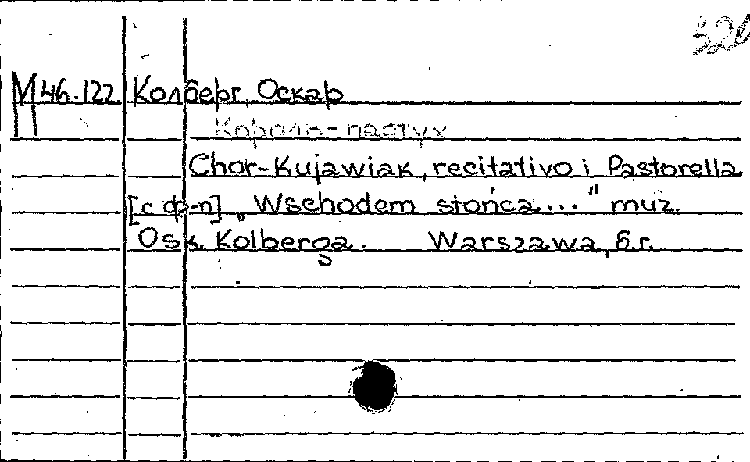 320
М 46.122 Колберг, Оскар
Король-пастух
Chor-Kujawiak, recitativo i Pastorella
[с ф-п] „Wschodem słońca..." muz.
Osk. Kolberga. Warszawa, б.г.